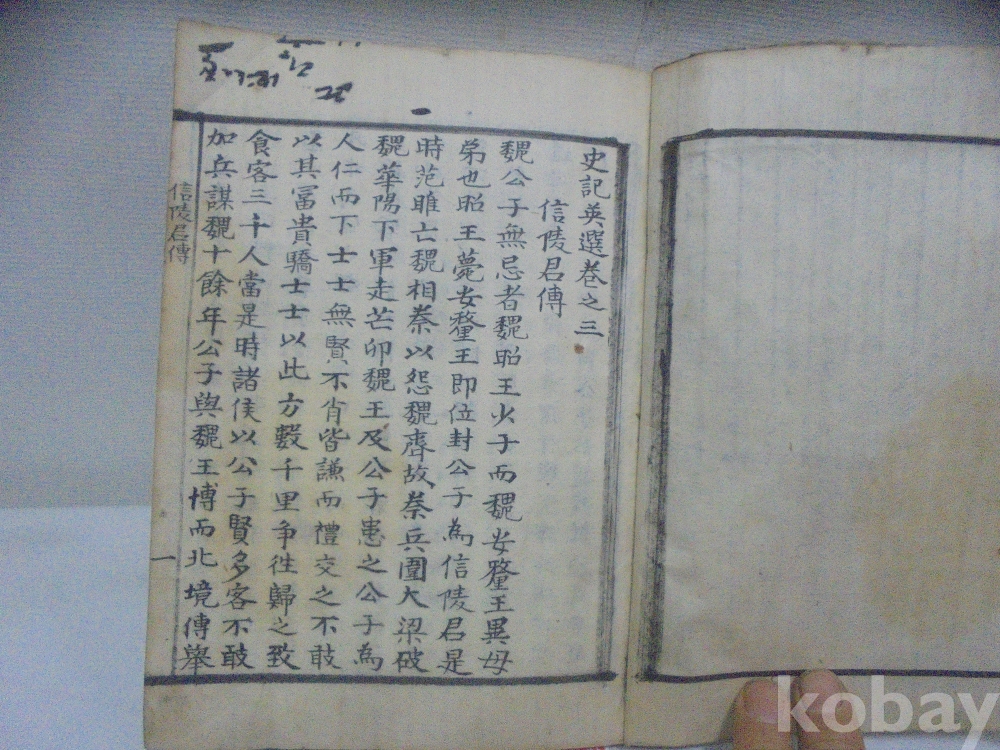 史記英選卷之三
信陵君傳
魏公子無忌者魏昭王少子而魏安釐王異母
弟也昭王薨安釐王即位封公子為信陵君是
時范睢亡魏相秦以怨魏齊故秦兵圍大梁破
魏華陽下軍走芒卯魏王及公子患之公子為
人仁而下士士無賢不肖皆謙而禮交之不敢
以其冨貴驕士士以此方數千里爭徃歸之致
食客三千人當是時諸侯以公子賢多客不敢
加兵謀魏十餘年公子與魏王博而北境傳舉
信陵君傳
一
kobay